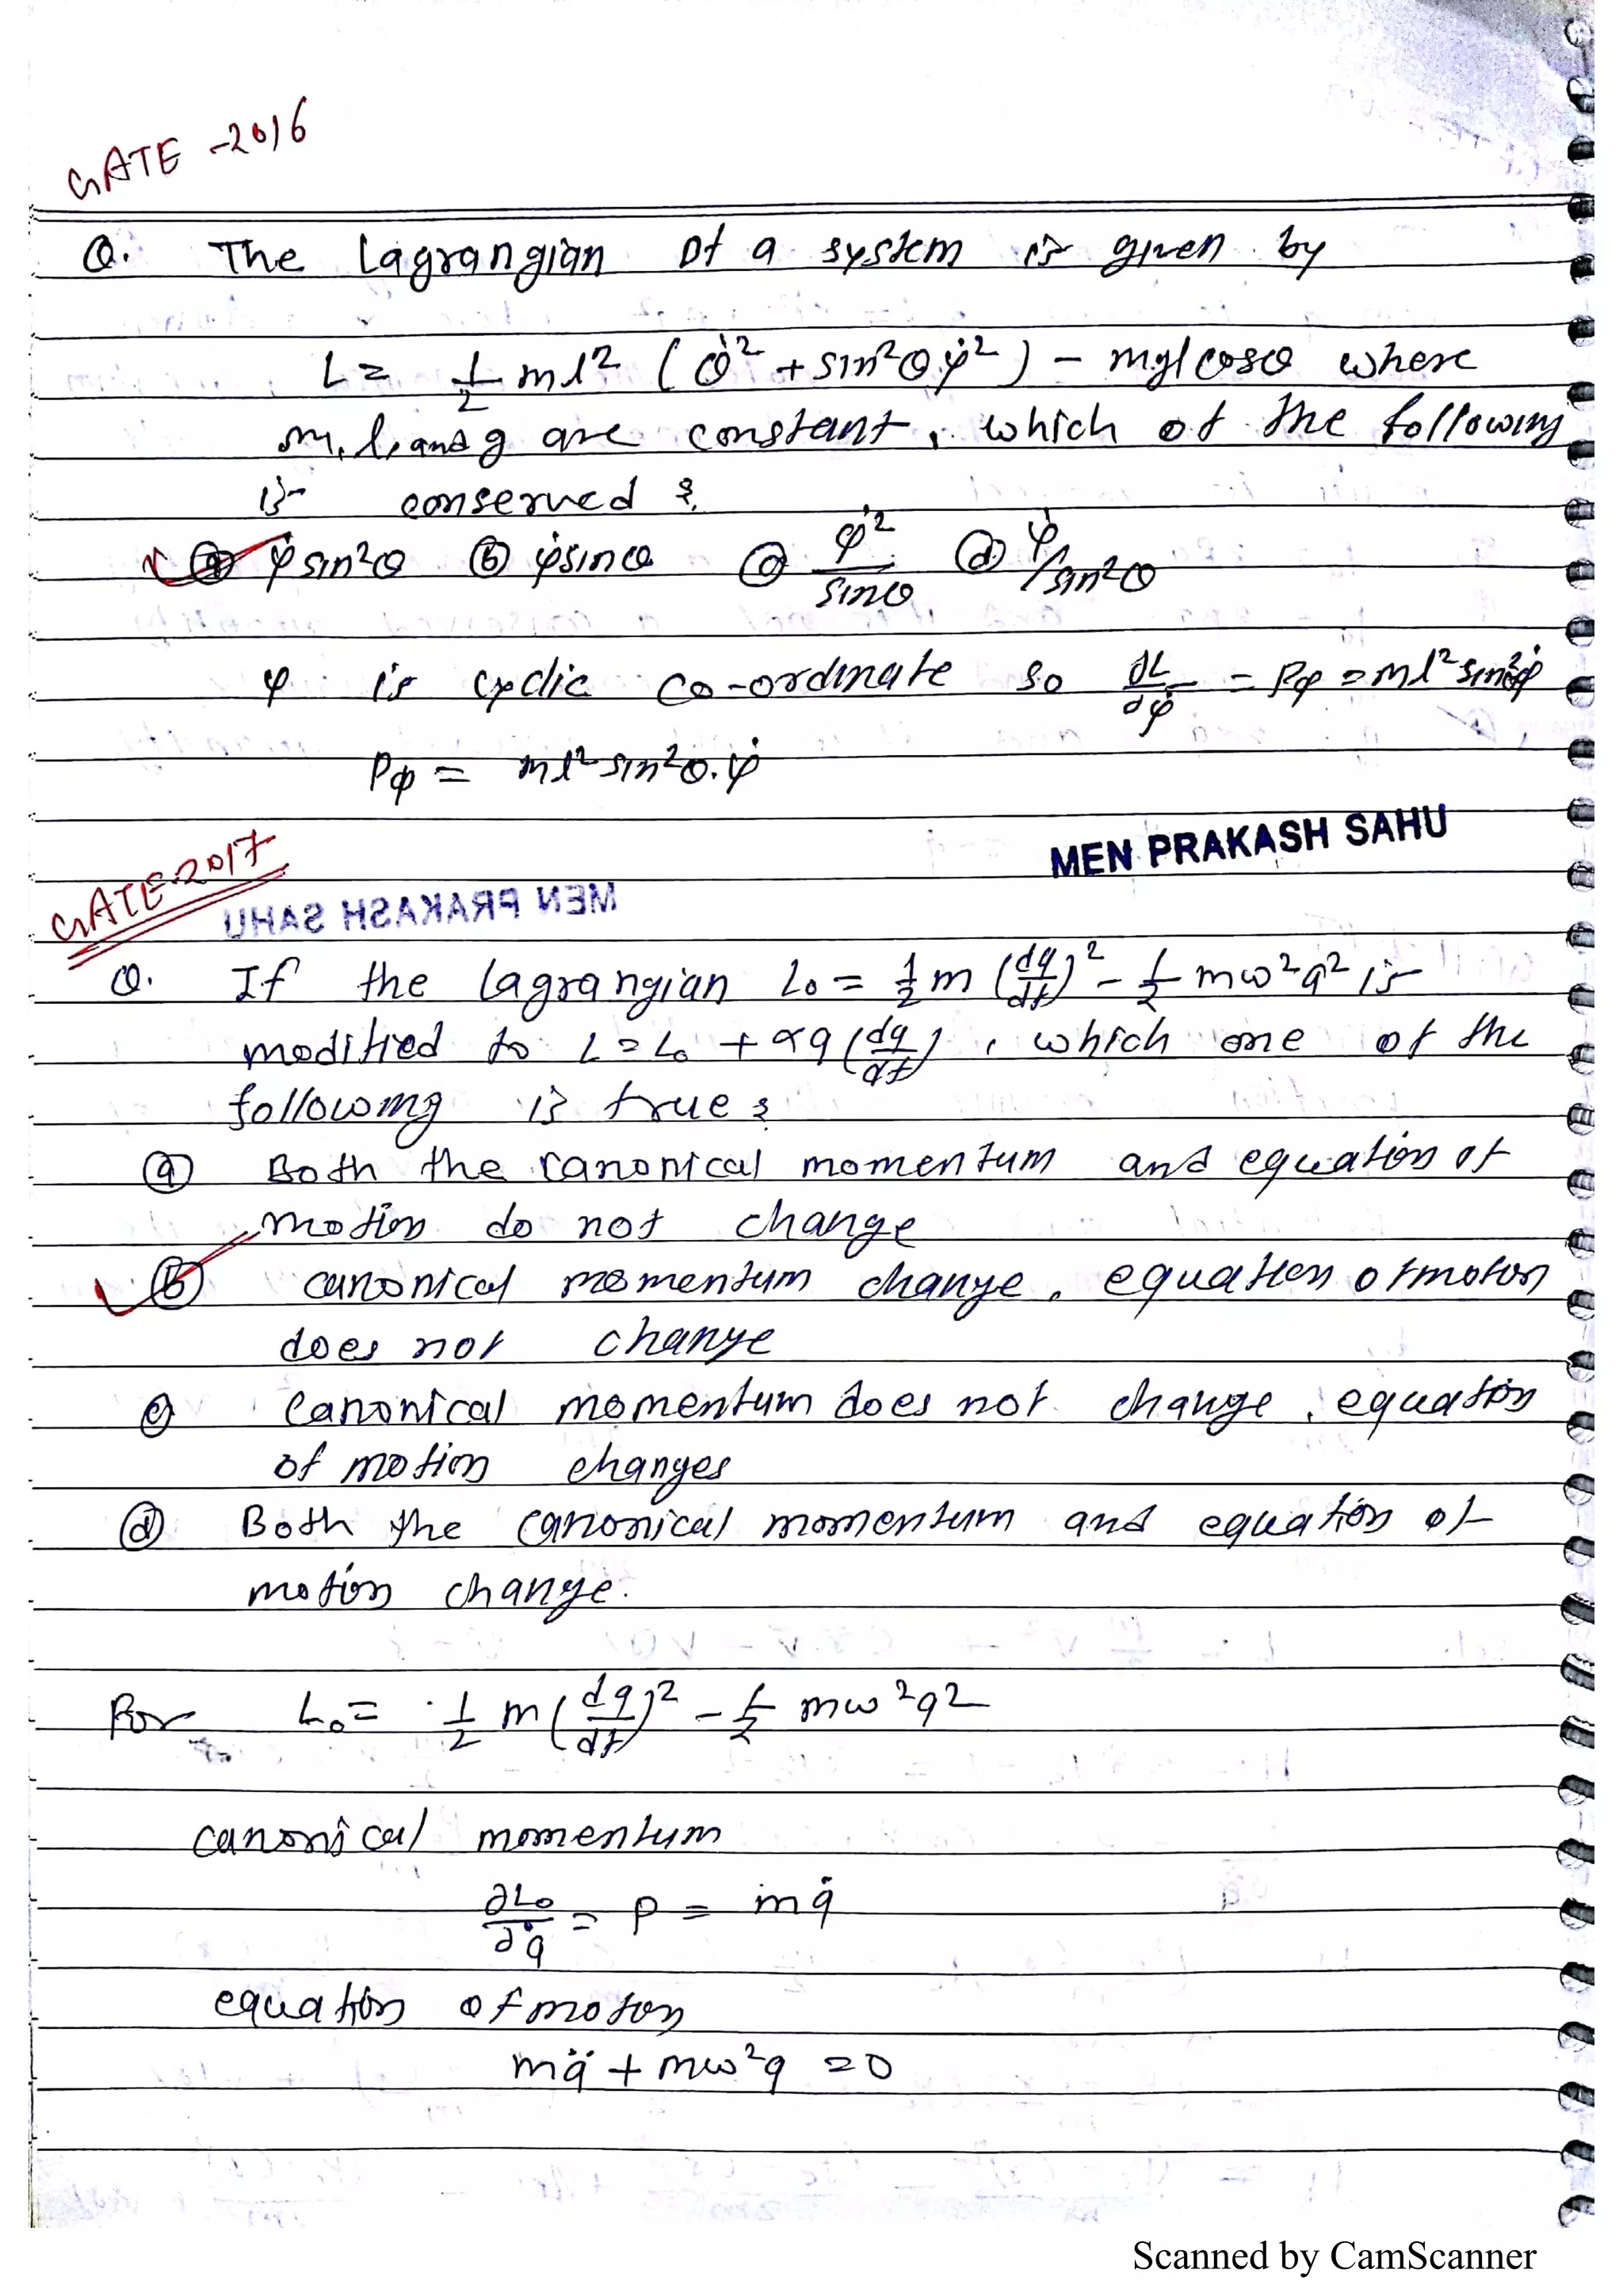 GATE -2016
Q. The Lagrangian of a system is given by
L = 1/2 ml² (θ̇² + sin²θ φ̇²) - mgl cosθ where
m, l, and g are constant, which of the following
is conserved ?
(a) φ̇ sin²θ (b) φ̇ sinθ (c) φ̇²/sinθ (d) φ̇/sin²θ
φ is cyclic co-ordinate so ∂L/∂φ̇ = Pφ = ml² sin²θφ̇
Pφ = ml² sin²θ. φ̇
MEN PRAKASH SAHU
GATE-2017
MEN PRAKASH SAHU
Q. If the Lagrangian L₀ = 1/2 m (dq/dt)² - 1/2 mω²q² is
modified to L = L₀ + αq (dq/dt), which one of the
following is true ?
(a) Both the canonical momentum and equation of
motion do not change
(b) canonical momentum change, equation of motion
does not change
(c) Canonical momentum does not change, equation
of motion changes
(d) Both the canonical momentum and equation of
motion change.
For L₀ = 1/2 m (dq/dt)² - 1/2 mω²q²
canonical momentum
∂L₀/∂q̇ = p = mq̇
equation of motion
mq̈ + mω²q = 0
Scanned by CamScanner